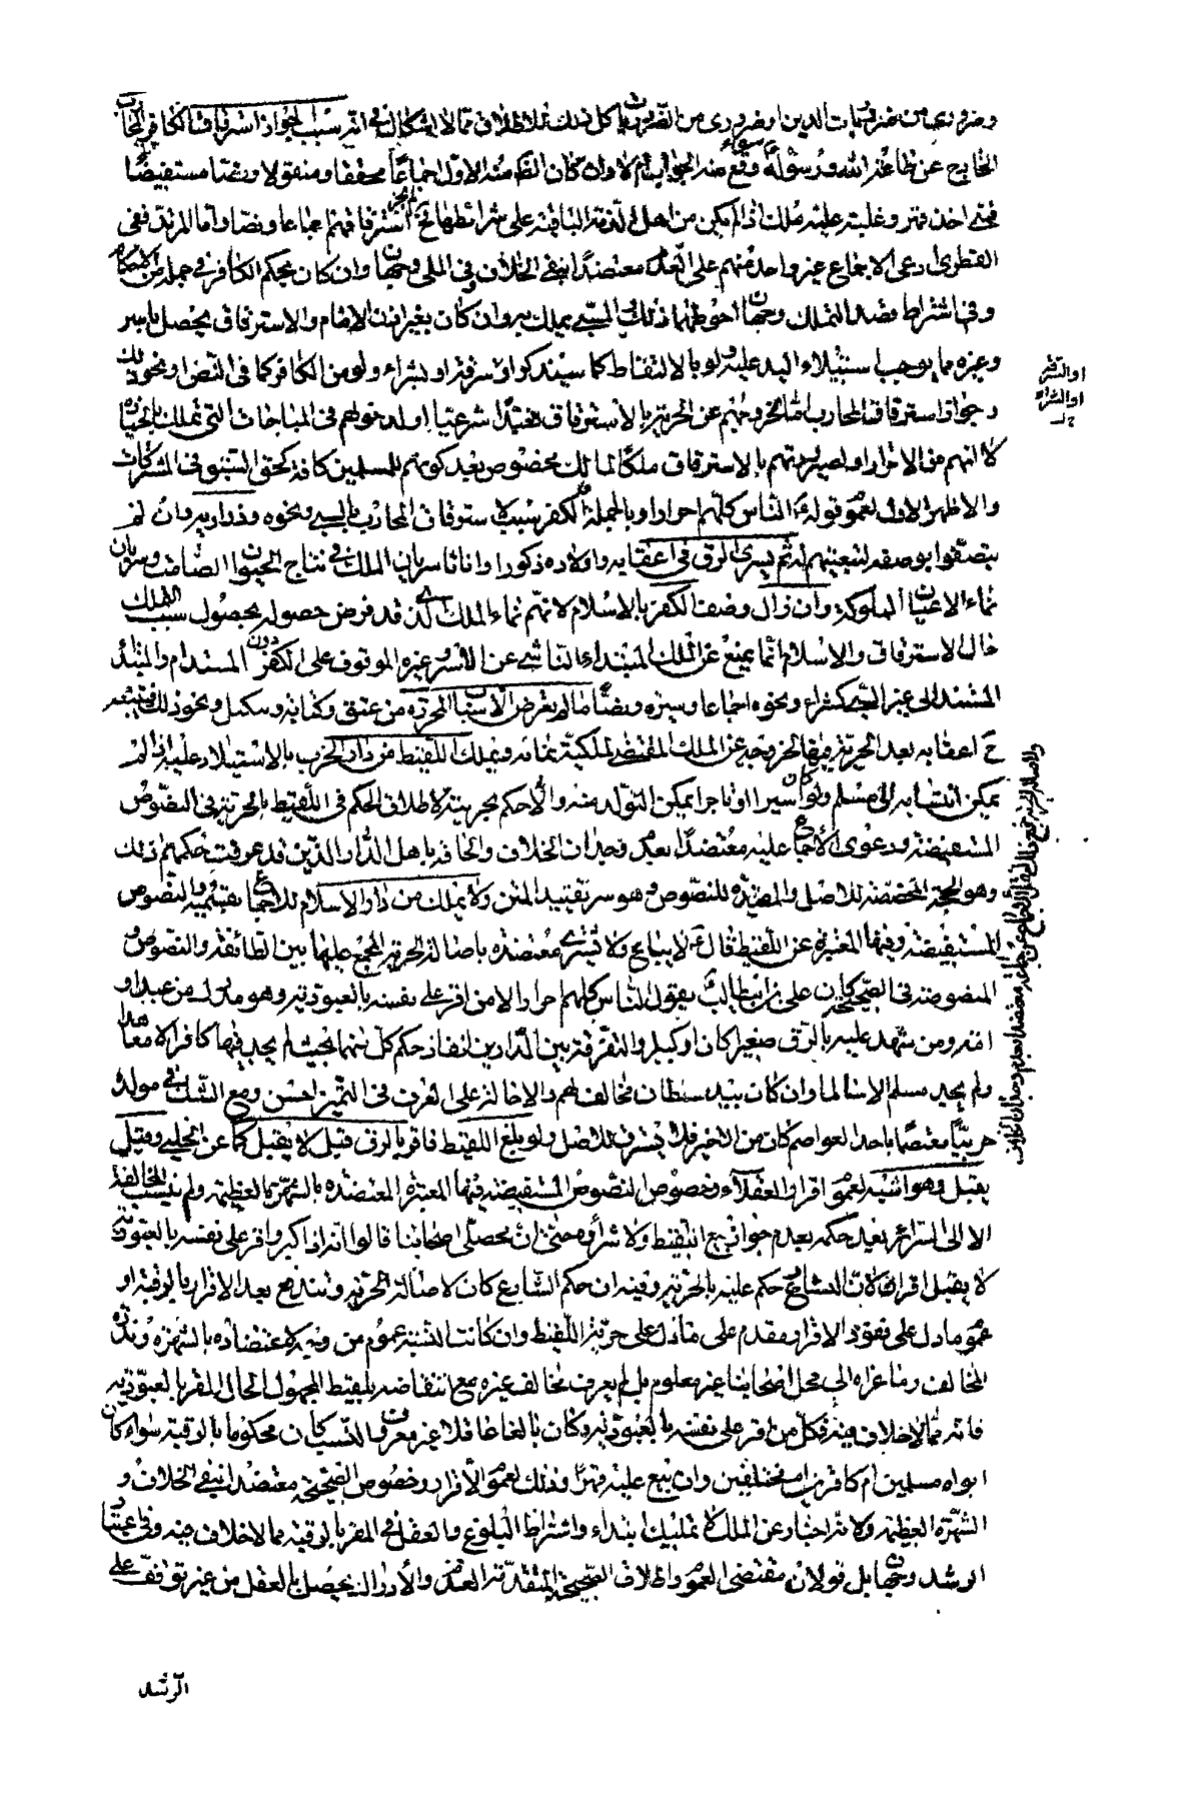 وضروري من ضروريات الدين او ضروري من الضروريات كل ذلك للاطلاق مما لا اشكال في انه سبب لجواز استرقاق الكافر المحارب
الخارج عن طاعة الله ورسوله سواء وقع منه الحراب ام لا وان كان الظ منه الاول اجماعا محققا ومنقولا ونصا مستفيضا
فمتى اخذ قهر وغلبة عليه ملك اذا لم يكن من اهل الذمة الباقية على شرائطها نعم يجوز استرقاقهم اجماعا ونصا واما المرتد ففي
الفطري ادعى الاجماع غير واحد منهم على العدم معتضدا بنفي الخلاف وفي الملي وجهان وان كان بحكم الكافر في جملة من الاحكام
وفي اشتراط قصد التملك وجهان احوطهما ذلك في السبي يملك به وان كان بغير اذن الامام والاسترقاق يحصل بالاسر
وغيره مما يوجب استيلاء اليد عليه ولو بالالتقاط كما سيذكر او سرقة او بشراء ولو من الكافر كما في النص او نحو ذلك
وجواز استرقاق المحارب اما لخروجهم عن الحرية بالاسترقاق تعبدا شرعيا او لدخولهم في المباحات التي تملك بالحيازة
لا انهم من الاحرار او لصيرورتهم بالاسترقاق ملكا لمالك مخصوص بعد كونهم للمسلمين كافة كحق السبق في المشتركات
والاظهر الاول لعموم قوله ع الناس كلهم احرار او بالجملة الكفر سبب لاسترقاق المحارب بالسبي ونحوه وذراريه وان لم
يتصفوا بوصفه لتبعيتهم له ثم يسري الرق في اعقابه واولاده ذكورا واناثا سريان الملك في نتاج الحيوان الصامت وسريان
نماء الاعيان المملوكة وان زال وصف الكفر بالاسلام لانهم نماء الملك الذي قد فرض حصوله بحصول سبب الملك
حال الاسترقاق والاسلام انما يمنع عن الملك المبتداء الناشي عن الاسر وغيره الموقوف على الكفر دون المستدام والمبتدأ
المستند الى غير السبي كشراء ونحوه اجماعا وسيرة ونصا ما لم يعرض الاسباب المحررة من عتق وكتابة وتنكيل ونحو ذلك فيتبعه
ح اعقابه بعد الحرية فيها لخروجه عن الملك المقتضي لملكية نمائه ويملك اللقيط من دار الحرب بالاستيلاد عليه اذا لم
يمكن انتسابه الى مسلم ولو كان اسيرا او تاجرا يمكن التولد منه والا حكم بحريته لاطلاق الحكم في اللقيط بالحرية في النصوص
المستفيضة ودعوى الاجماع عليه معتضدا بعدم وجدان الخلاف والحاقه باهل الدار الذين قد عرفت حكمهم ذلك
وهو الحجة المخصصة للاصل والمقيدة للنصوص وهو سر تقييد المتن ولا يملك من دار الاسلام للاجماع بقسميه والنصوص
المستفيضة وفيها المعتبرة عن اللقيط قال لا يباع ولا يشترى معتضدة باصالة الحرية المجمع عليها بين الطائفة والنصوص
المنصوصة في الصحيح كان علي بن ابيطالب ع يقول الناس كلهم احرار الا من اقر على نفسه بالعبودية وهو مدرك من عبد او
امة ومن شهد عليه بالرق صغيرا كان او كبيرا والتفرقة بين الدارين لنفاذ حكم كل منهما بحيث لم يجد فيها كافرا الا معاهدا
ولم يجد مسلم الا مسالما وان كان بيد سلطان مخالف لهم والاحالة على العرف في التميز احسن ومع الشك في مولد
حربيا معتصما باحد العواصم كان من الاخير فلا يسترق للاصل ولو بلغ اللقيط فاقر بالرق قيل لا يقبل كما عن الحلي وقيل
يقبل وهو اشبه لعموم اقرار العقلاء وخصوص النصوص المستفيضة فيها المعتبرة المعتضدة بالشهرة العظيمة ولم ينسب المخالفة
الا الى السرائر بعد حكمه بعدم جواز بيع اللقيط ولا شرائه حتى ان محصلي اصحابنا قالوا انه اذا كبر واقر على نفسه بالعبودية
لا يقبل اقراره لان الشارع حكم عليه بالحرية وفيه ان حكم الشارع كان لاصالة الحرية وتندفع بعد الاقرار بالرقية او
عموم ما دل على نفوذ الاقرار مقدم على ما دل على حرية اللقيط وان كانت النسبة عموم من وجه لاعتضاده بالشهرة وندرة
المخالف وما عزاه الى محصلي اصحابنا غير معلوم بل لم يعرف مخالف غيره مع انتقاضه بلقيط المجهول الحال المقر بالعبودية
فانه مما لا خلاف فيه فكل من اقر على نفسه بالعبودية وكان بالغا عاقلا غير معروف النسب كان محكوما بالرقية سواء كان
ابواه مسلمين ام كافرين ام مختلفين وان بيع عليه قهرا وذلك لعموم الاقرار وخصوص الصحيحة معتضدا بنفي الخلاف و
الشهرة العظيمة ولانه اخبار عن الملك لا تمليك ابتداء واشتراط البلوغ والعقل في المقر بالرقية مما لا خلاف فيه وفي اعتبار
الرشد وجهان بل قولان مقتضى العموم واطلاق الصحيحة المتقدمة العدم والادراك يحصل بالعقل من غير توقف على
الرشد
او السرقة
او الشراء
خ ل